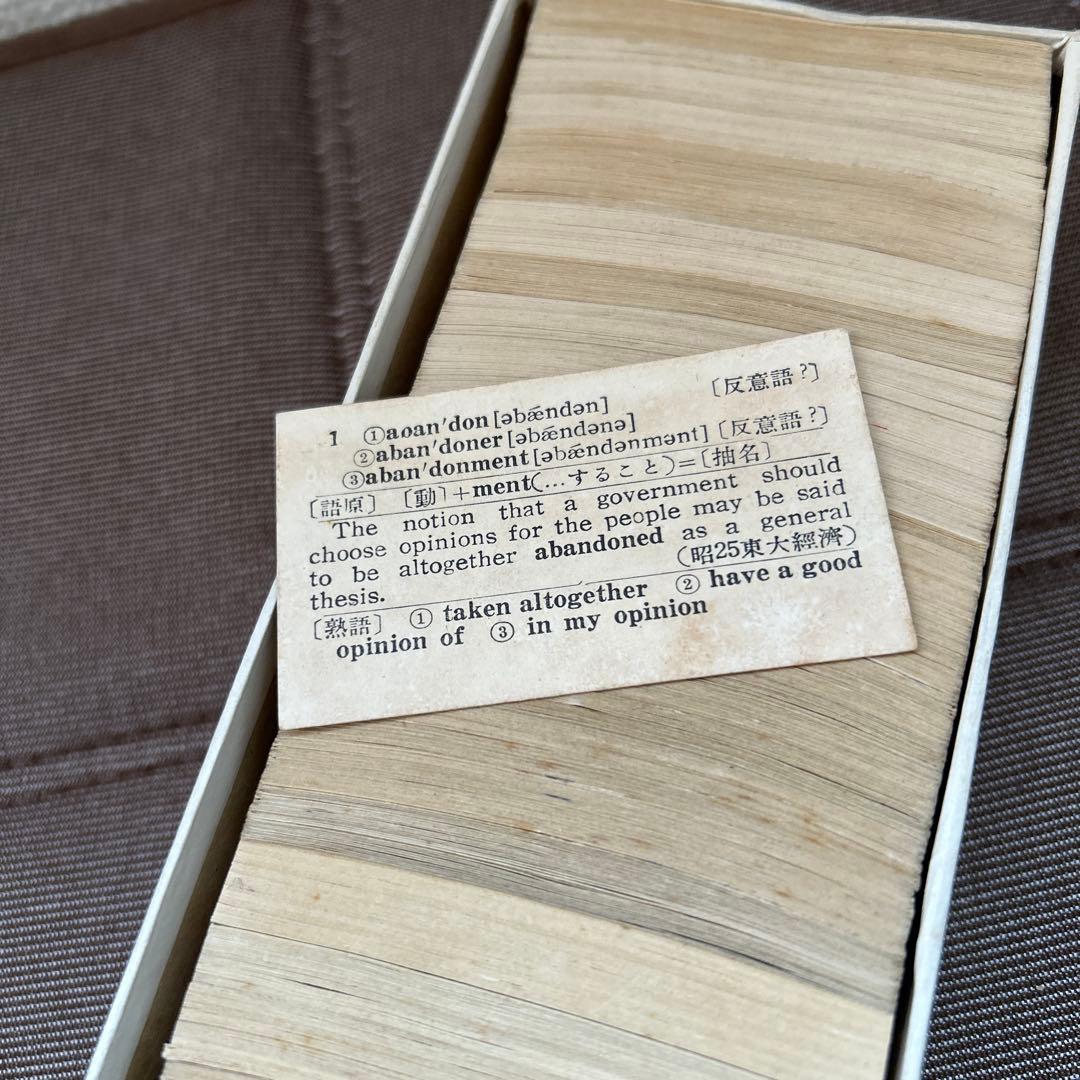 1 ①aoan′don [əbǽndən] 〔反意語?〕
②aban′doner [əbǽndənə] 〔反意語?〕
③aban′donment [əbǽndənmənt]
〔語原〕 〔動〕+ment(…すること)=〔抽名〕
The notion that a government should
choose opinions for the people may be said
to be altogether abandoned as a general
thesis. (昭25東大經濟)
〔熟語〕 ① taken altogether ② have a good
opinion of ③ in my opinion